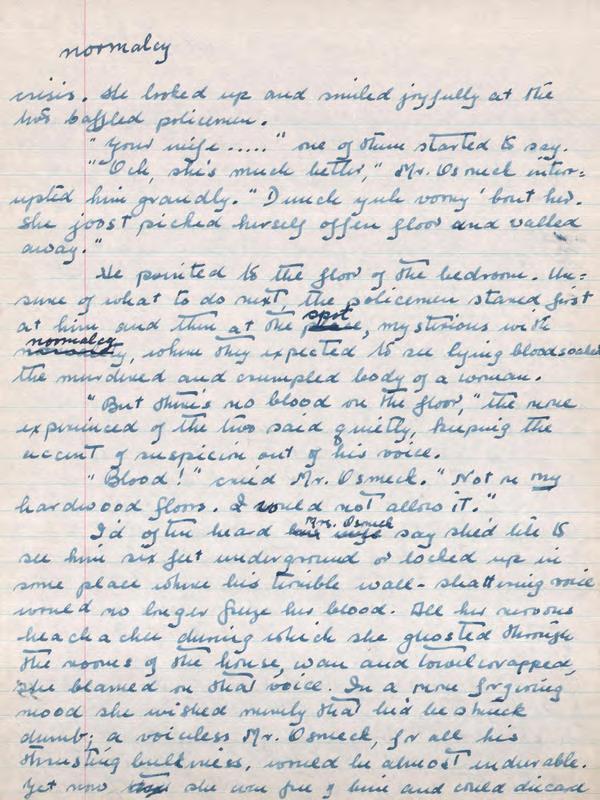 normalcy
crisis. He looked up and smiled joyfully at the
two baffled policemen.
"Your wife ....." one of them started to say.
"Och, she's much better," Mr. Osmeck inter=
upted him grandly. "Dunch yuh vorry 'bout her.
She joost picked herself offen floor and valked
away."
He pointed to the floor of the bedroom. Un=
sure of what to do next, the policemen stared first
at him and then at the place, mysterious with
spot
normalcy
, where they expected to see lying bloodsoaked
the murdered and crumpled body of a woman.
"But there's no blood on the floor," the more
experienced of the two said quietly, keeping the
accent of suspicion out of his voice.
"Blood!" cried Mr. Osmeck. "Not on my
hardwood floors. I vould not allow it."
I'd often heard his wife say she'd like to
Mrs. Osmeck
see him six feet underground or locked up in
some place where his terrible wall-shattering voice
would no longer freeze her blood. All her nervous
headaches during which she ghosted through
the rooms of the house, wan and towelwrapped,
she blamed on that voice. In a more forgiving
mood she wished merely that he'd be struck
dumb; a voiceless Mr. Osmeck, for all his
thrusting bulkiness, would be almost endurable.
Yet now she was free of him and could discard